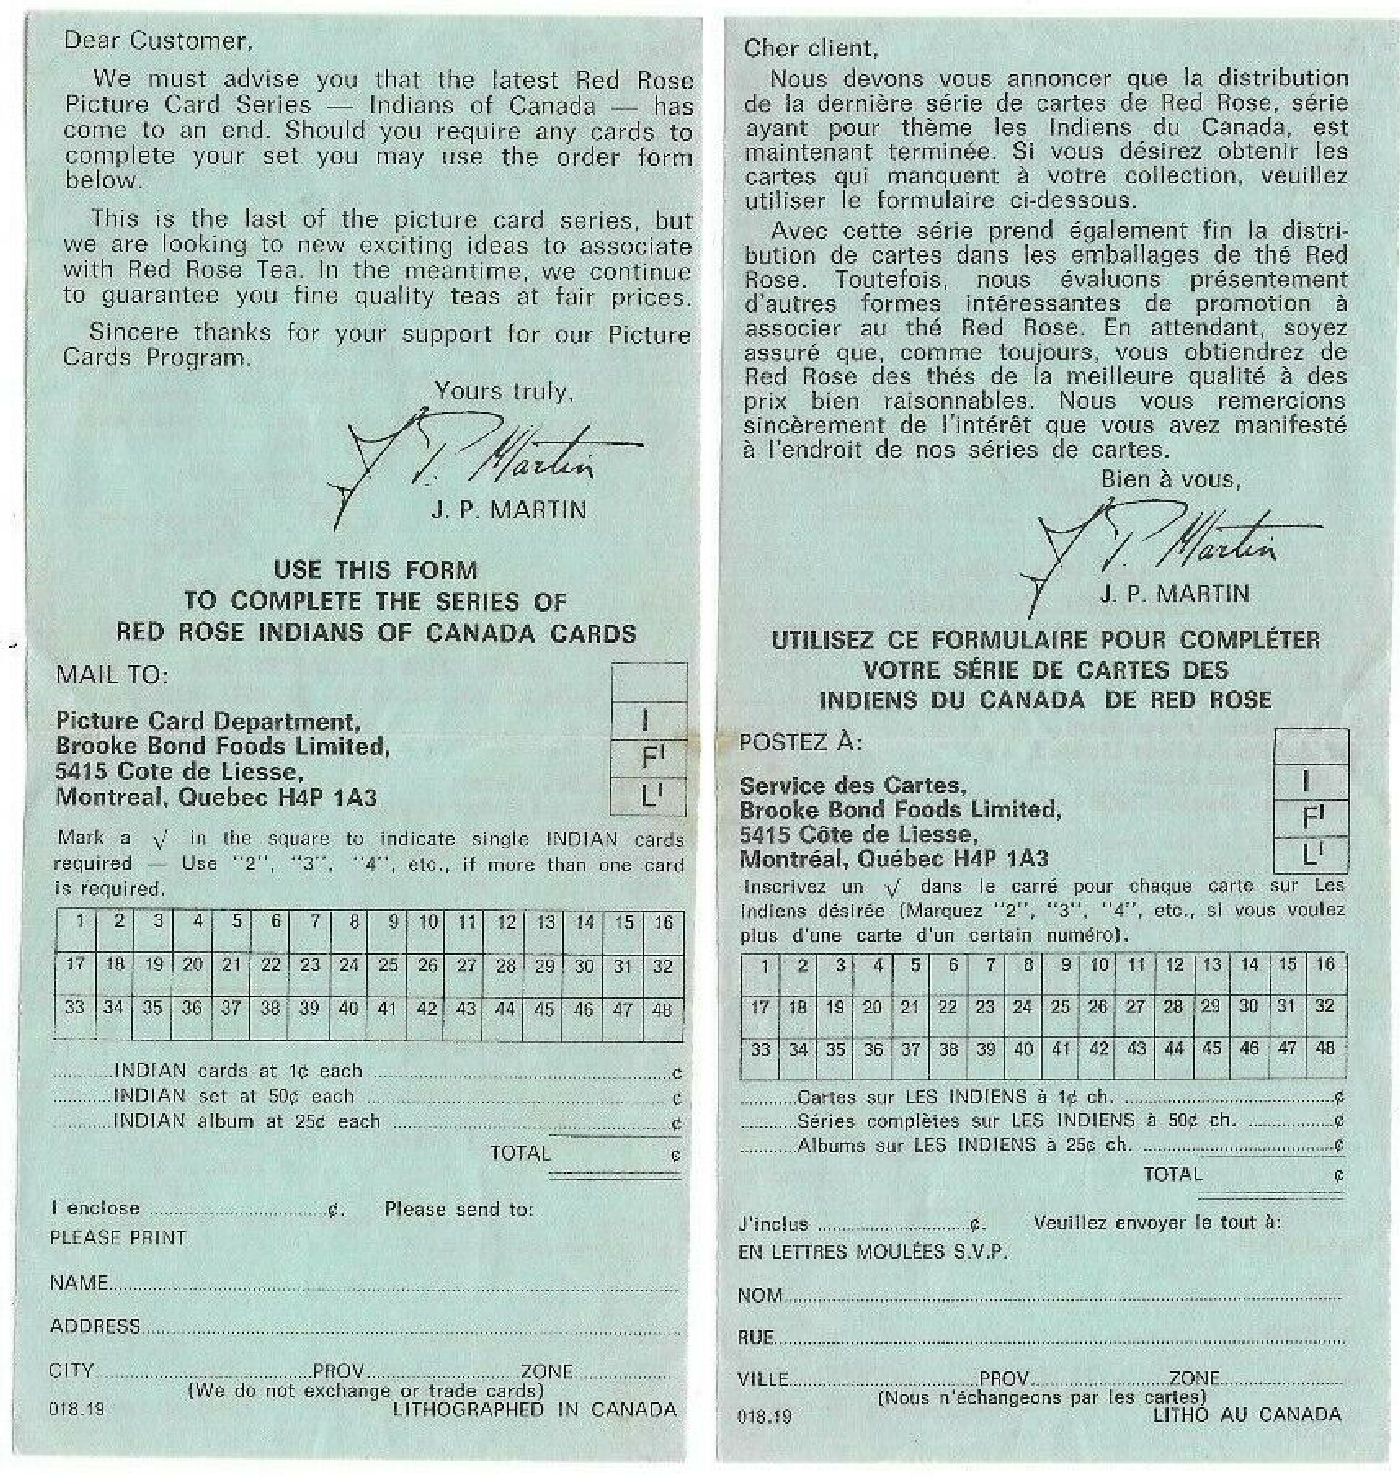 Dear Customer,
We must advise you that the latest Red Rose
Picture Card Series — Indians of Canada — has
come to an end. Should you require any cards to
complete your set you may use the order form
below.
This is the last of the picture card series, but
we are looking to new exciting ideas to associate
with Red Rose Tea. In the meantime, we continue
to guarantee you fine quality teas at fair prices.
Sincere thanks for your support for our Picture
Cards Program.
Yours truly,
J. P. Martin
J. P. MARTIN
USE THIS FORM
TO COMPLETE THE SERIES OF
RED ROSE INDIANS OF CANADA CARDS
MAIL TO:
Picture Card Department,
Brooke Bond Foods Limited,
5415 Cote de Liesse,
Montreal, Quebec H4P 1A3
I
F'
L'
Mark a √ in the square to indicate single INDIAN cards
required — Use "2", "3", "4", etc., if more than one card
is required.
1 2 3 4 5 6 7 8 9 10 11 12 13 14 15 16
17 18 19 20 21 22 23 24 25 26 27 28 29 30 31 32
33 34 35 36 37 38 39 40 41 42 43 44 45 46 47 48
..........INDIAN cards at 1¢ each ..........¢
..........INDIAN set at 50¢ each ..........¢
..........INDIAN album at 25¢ each ..........¢
TOTAL ¢
I enclose ..........¢. Please send to:
PLEASE PRINT
NAME..........
ADDRESS..........
CITY..........PROV..........ZONE..........
(We do not exchange or trade cards)
018.19 LITHOGRAPHED IN CANADA
Cher client,
Nous devons vous annoncer que la distribution
de la dernière série de cartes de Red Rose, série
ayant pour thème les Indiens du Canada, est
maintenant terminée. Si vous désirez obtenir les
cartes qui manquent à votre collection, veuillez
utiliser le formulaire ci-dessous.
Avec cette série prend également fin la distri-
bution de cartes dans les emballages de thé Red
Rose. Toutefois, nous évaluons présentement
d'autres formes intéressantes de promotion à
associer au thé Red Rose. En attendant, soyez
assuré que, comme toujours, vous obtiendrez de
Red Rose des thés de la meilleure qualité à des
prix bien raisonnables. Nous vous remercions
sincèrement de l'intérêt que vous avez manifesté
à l'endroit de nos séries de cartes.
Bien à vous,
J. P. Martin
J. P. MARTIN
UTILISEZ CE FORMULAIRE POUR COMPLÉTER
VOTRE SÉRIE DE CARTES DES
INDIENS DU CANADA DE RED ROSE
POSTEZ À:
Service des Cartes,
Brooke Bond Foods Limited,
5415 Côte de Liesse,
Montréal, Québec H4P 1A3
I
F'
L'
Inscrivez un √ dans le carré pour chaque carte sur Les
Indiens désirée (Marquez "2", "3", "4", etc., si vous voulez
plus d'une carte d'un certain numéro).
1 2 3 4 5 6 7 8 9 10 11 12 13 14 15 16
17 18 19 20 21 22 23 24 25 26 27 28 29 30 31 32
33 34 35 36 37 38 39 40 41 42 43 44 45 46 47 48
..........Cartes sur LES INDIENS à 1¢ ch. ..........¢
..........Séries complètes sur LES INDIENS à 50¢ ch. ..........¢
..........Albums sur LES INDIENS à 25¢ ch. ..........¢
TOTAL ¢
J'inclus ..........¢. Veuillez envoyer le tout à:
EN LETTRES MOULÉES S.V.P.
NOM..........
RUE..........
VILLE..........PROV..........ZONE..........
(Nous n'échangeons par les cartes)
018.19 LITHO AU CANADA